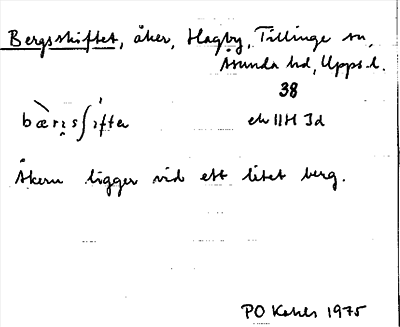 Bergsskiftet, åker, Hagby, Tillinge sn,
Åsunda hd, Upps. l.
38
bæ̀rɪsʃɪ́ftɐ ek 11H Id
Åkern ligger vid ett litet berg.
PO Kahls 1975